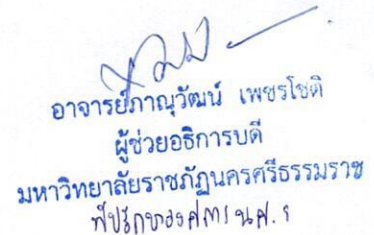 อาจารย์ภาณุวัฒน์ เพชรโชติ
ผู้ช่วยอธิการบดี
มหาวิทยาลัยราชภัฏนครศรีธรรมราช